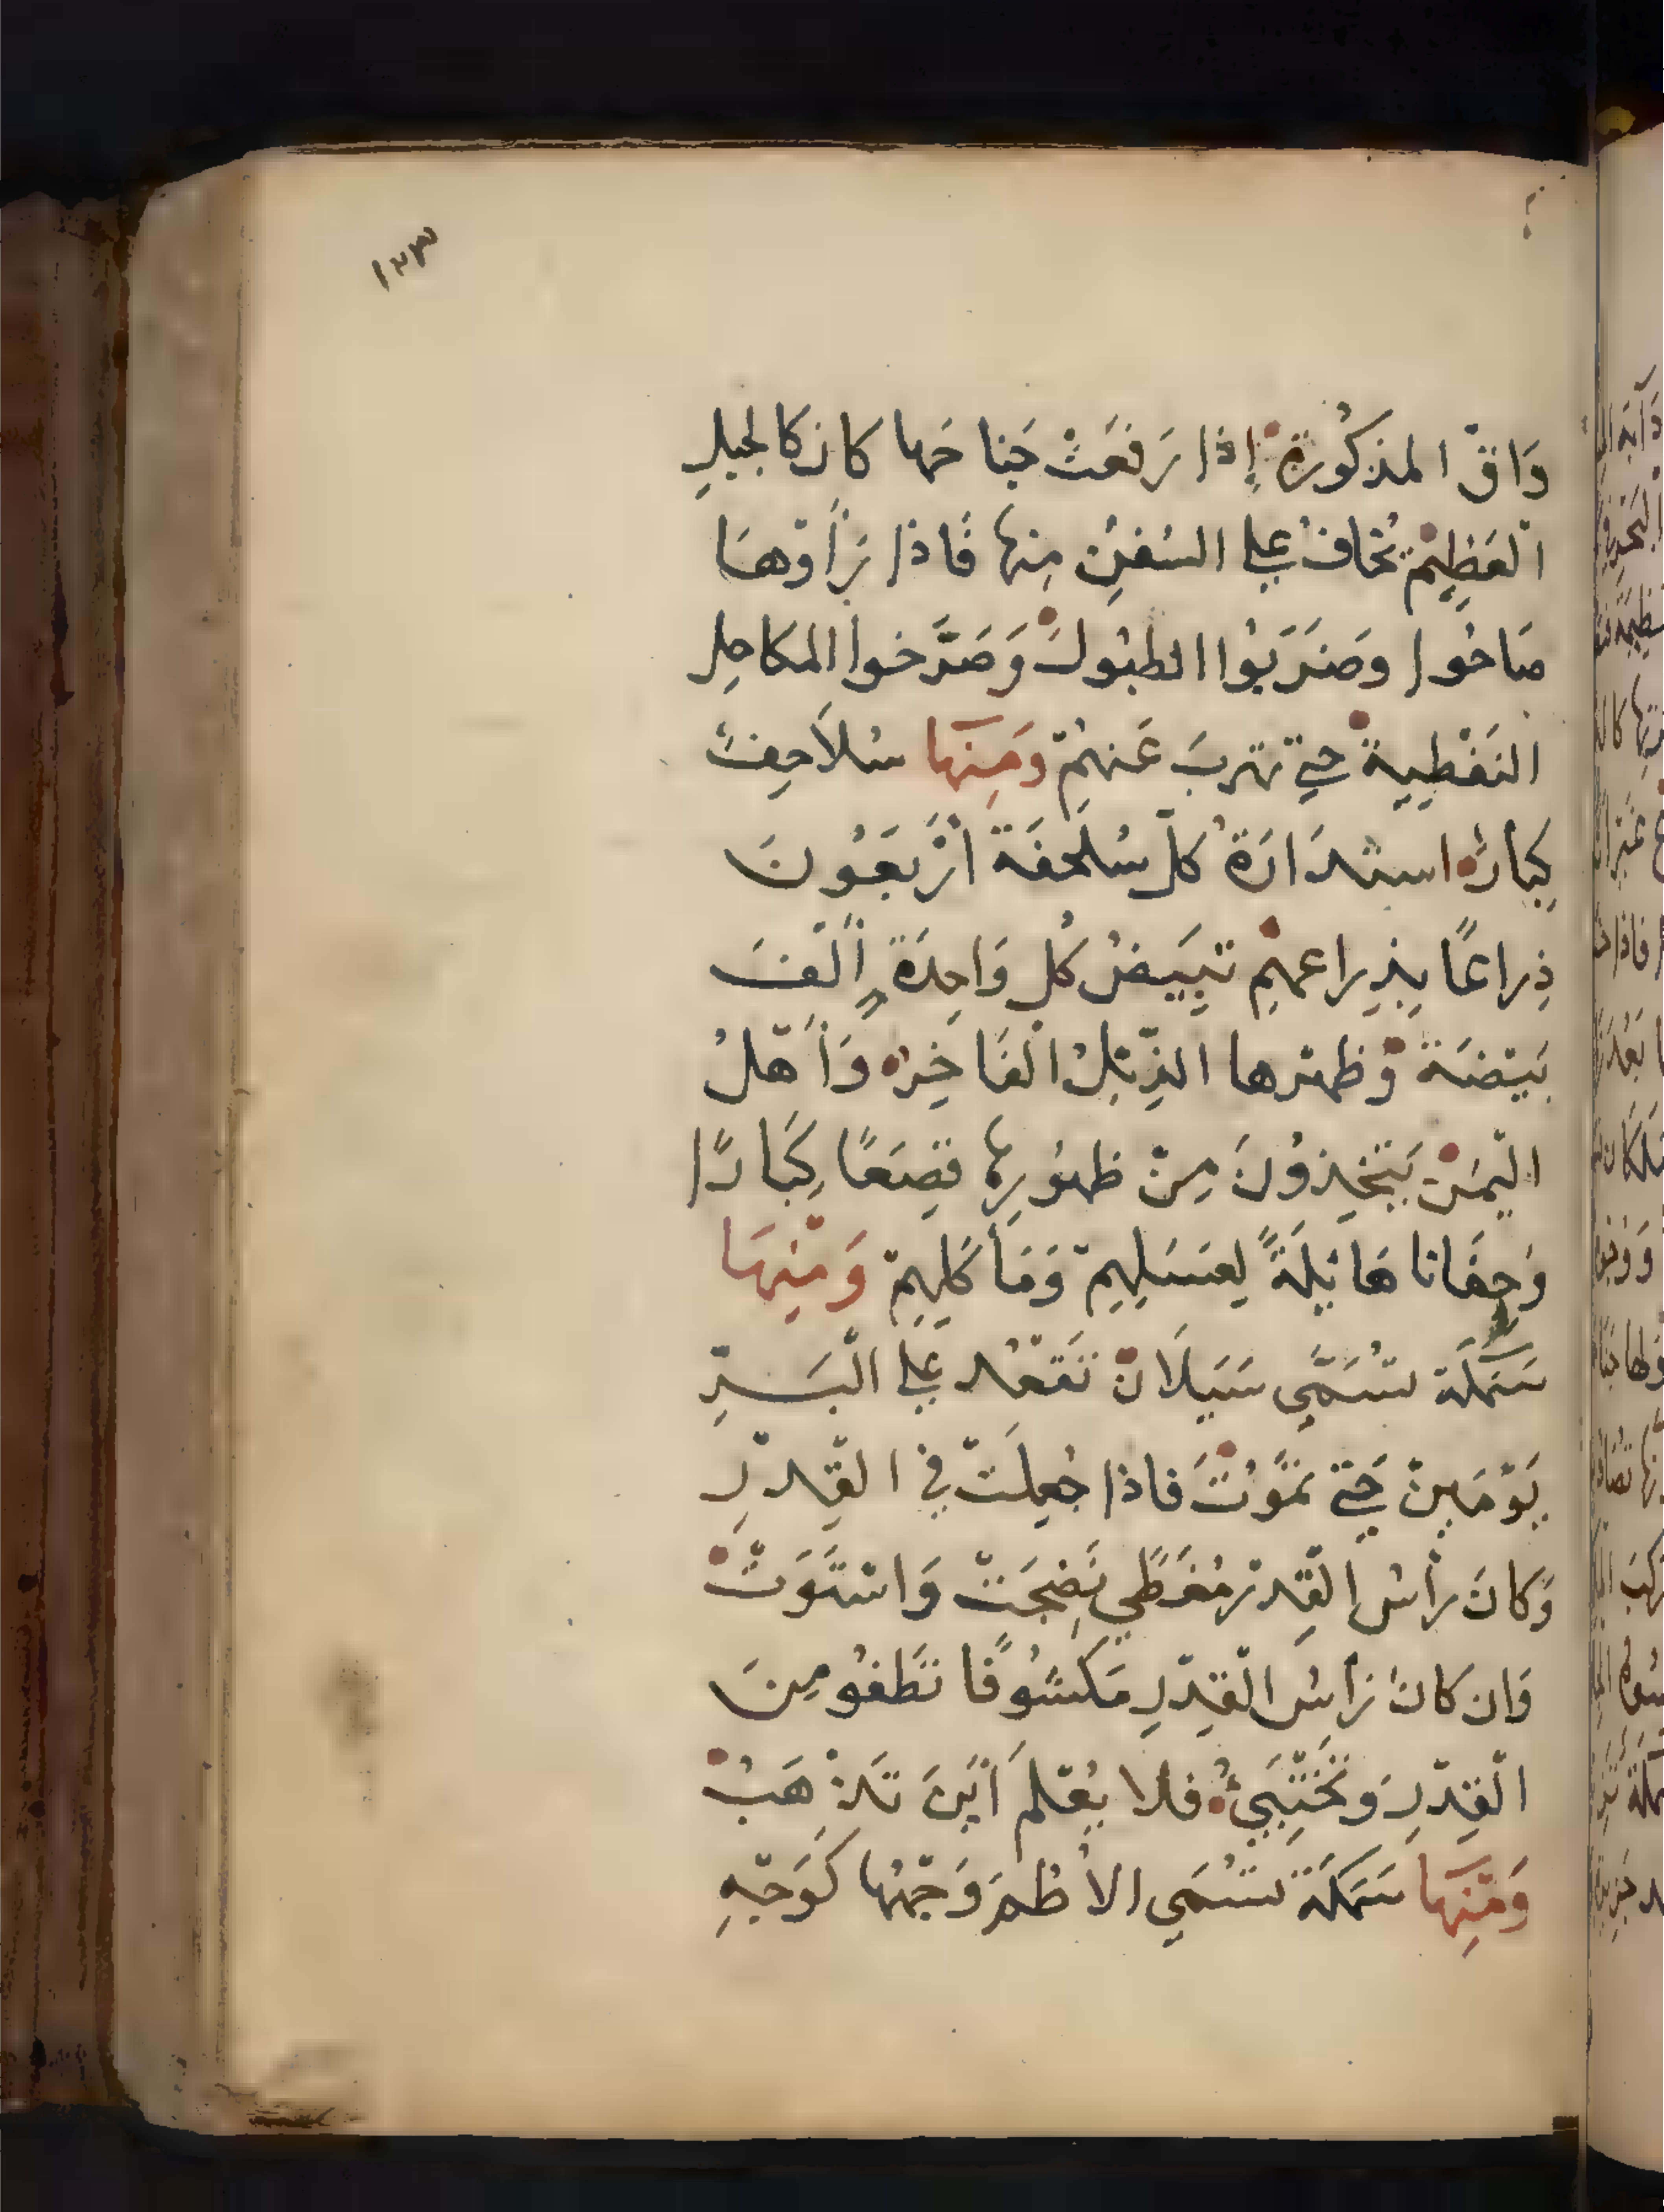 ١٢٣
وَاقْ المذكُورة إذا رَفعَتْ جَناحَها كان كالجبلِ
العَظِيمْ تُخافُ على السُفنِ مِنها فَاذا رَأوْهَا
صَاحُوا وضَرَبُوا الطبُولَ وَصَرَّخوا المكاحِل
النَفْطِيةْ حتي تهربَ عَنهُمْ وَمِنهَا سُلاحِفَ
كِبارُ استدَارَةُ كلّ سُلحفَة أرْبَعَوُنَ
ذِراعًا بِذِراعهِم تَبِيَضُ كُل وَاحِدَةٍ ألْفَ
بَيْضَة وْظهْرها الذِّبْلُ الْفَاخِرْ وَأهْلُ
اليَمَنْ يَتّخِذوُنَ مِنْ ظهُورِها قِصَعًا كِبَارًا
وَجِفَانا هَائِلَةً لِغسَلِهِمْ وَمَأكَلِهِمْ وَمْنِهَا
سَمَكَة تُسَمَّي سَيَلَانْ تَقْعُد عَلي الْبَرِّ
يَوْمَينْ حَتّي تَمَوُتَ فاذا جُعِلَتْ في القِدْرِ
وَكانَ رأسُ القِدْر مُغَطًي نَضِجَتْ وَاسْتَوَتْ
وَان كَانَ رَأسُ الْقِدْرِ مَكشُوفًا تَطفُو مِنَ
الْقِدْرِ وَتَخْتَبِيُ فلا يُعْلَم أيْنَ تَذْهَبُ
وَمْنِهَا سَمَكَة تُسَمي الأطُم وَجْهُها كَوَجْهِ